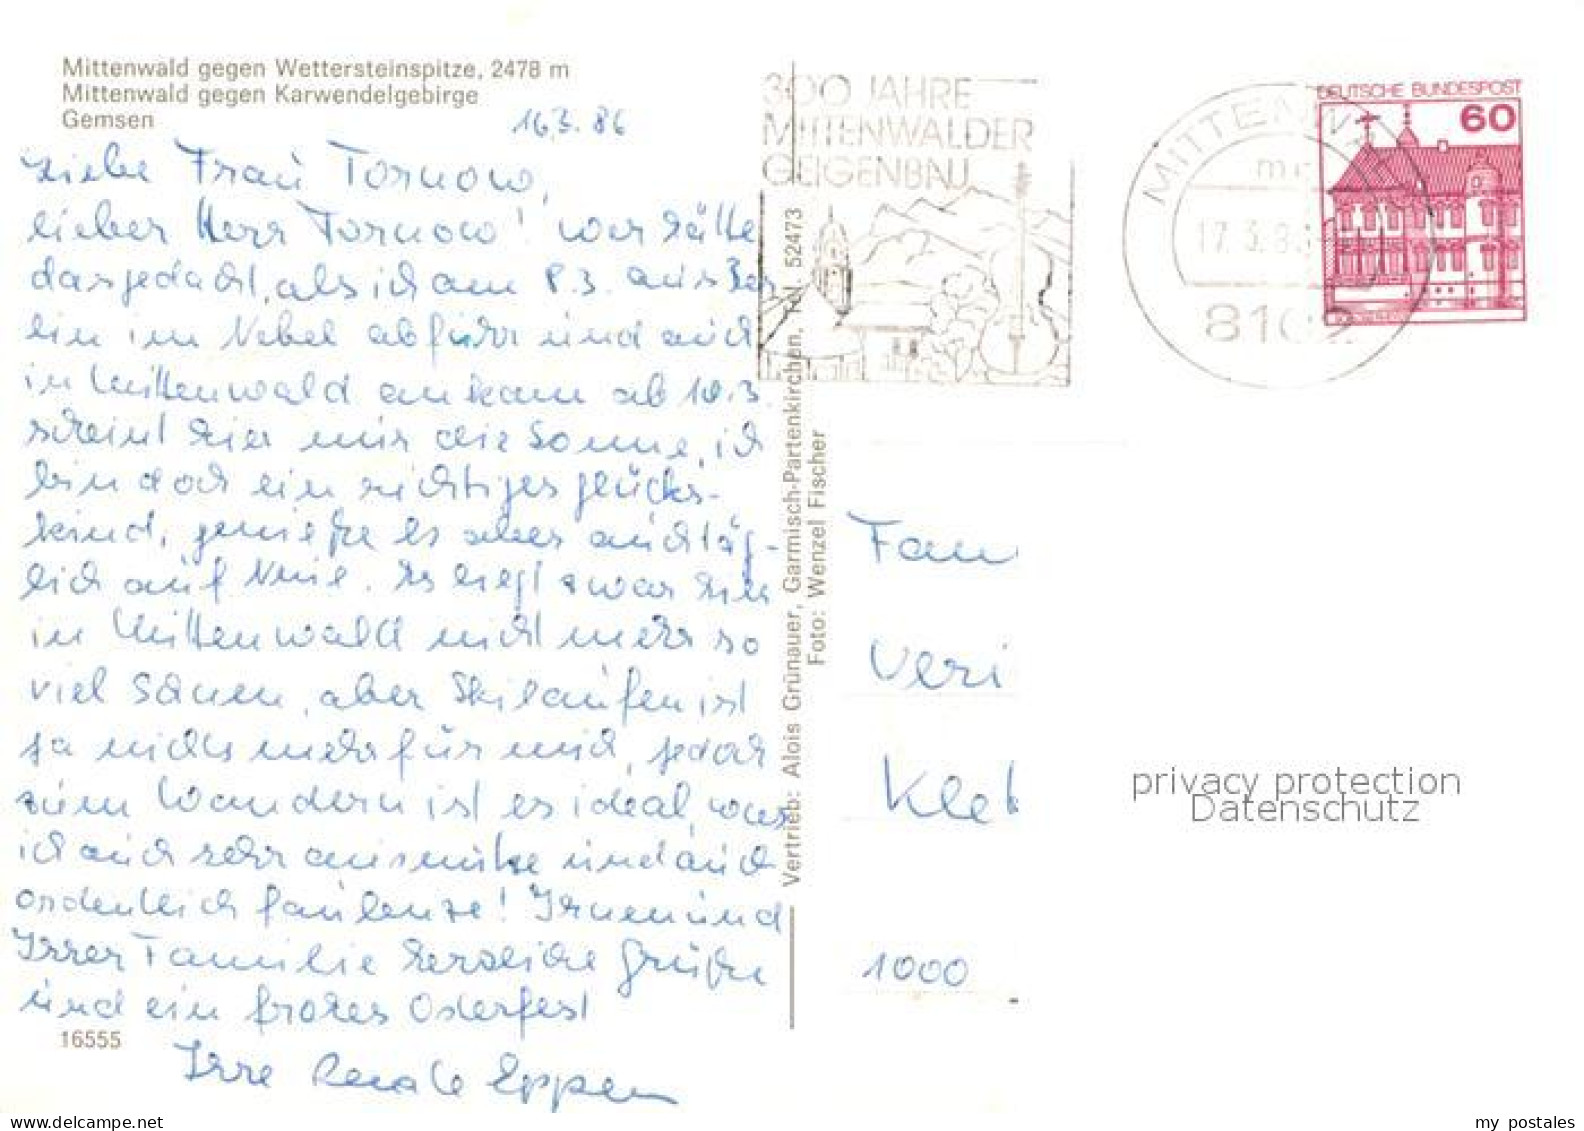 Mittenwald gegen Wettersteinspitze, 2478 m
Mittenwald gegen Karwendelgebirge
Gemsen
16.3.86
Liebe Frau Tornow,
lieber Herr Tornow! wer hätte
das gedacht, als ich am 8.3. aus Ber
lin im Nebel abfuhr und auch
in Mittenwald ankam ab 10.3.
scheint hier nur die Sonne, ich
bin doch ein richtiges Glücks-
kind, genieße es aber auch täg-
lich auf Neue. Es liegt zwar hier
in Mittenwald nicht mehr so
viel Schnee, aber Skilaufen ist
ja nichts mehr für mich, jedoch
zum Wandern ist es ideal, was
ich auch sehr ausnutze und auch
ordentlich faulenze! Ihnen und
Ihrer Familie herzliche Grüße
und ein frohes Osterfest
Ihre Renate Eppen
16555
Vertrieb: Alois Grünauer, Garmisch-Partenkirchen, Tel. 52473
Foto: Wenzel Fischer
300 JAHRE
MITTENWALDER
GEIGENBAU
MITTENWALD
17.3.86
8102
DEUTSCHE BUNDESPOST
60
Fam
Veri
Kleb
1000
privacy protection
Datenschutz
delcampe.net
my postales